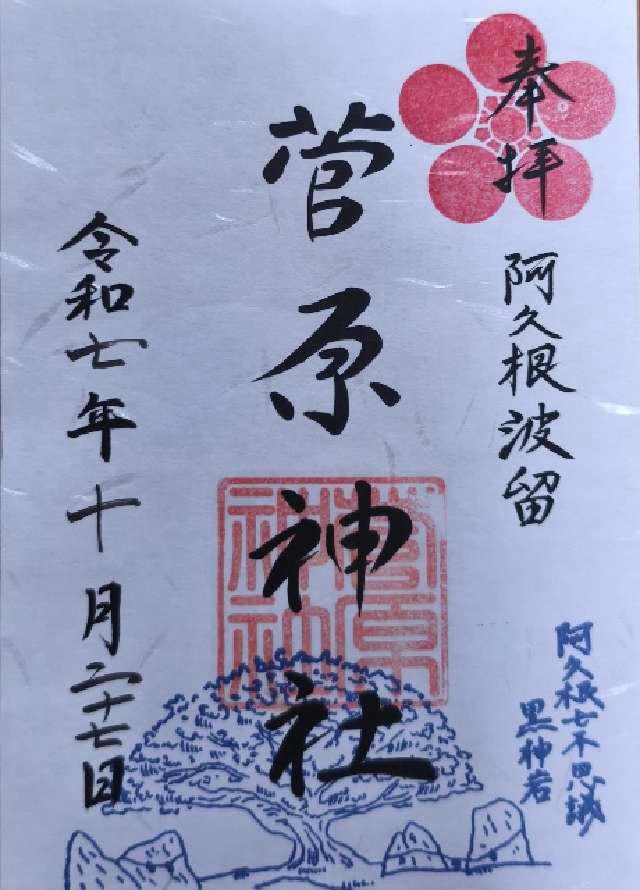 奉拝
阿久根波留
阿久根七不思議
黒神岩
菅原神社
菅原
神社
令和七年十月二十七日